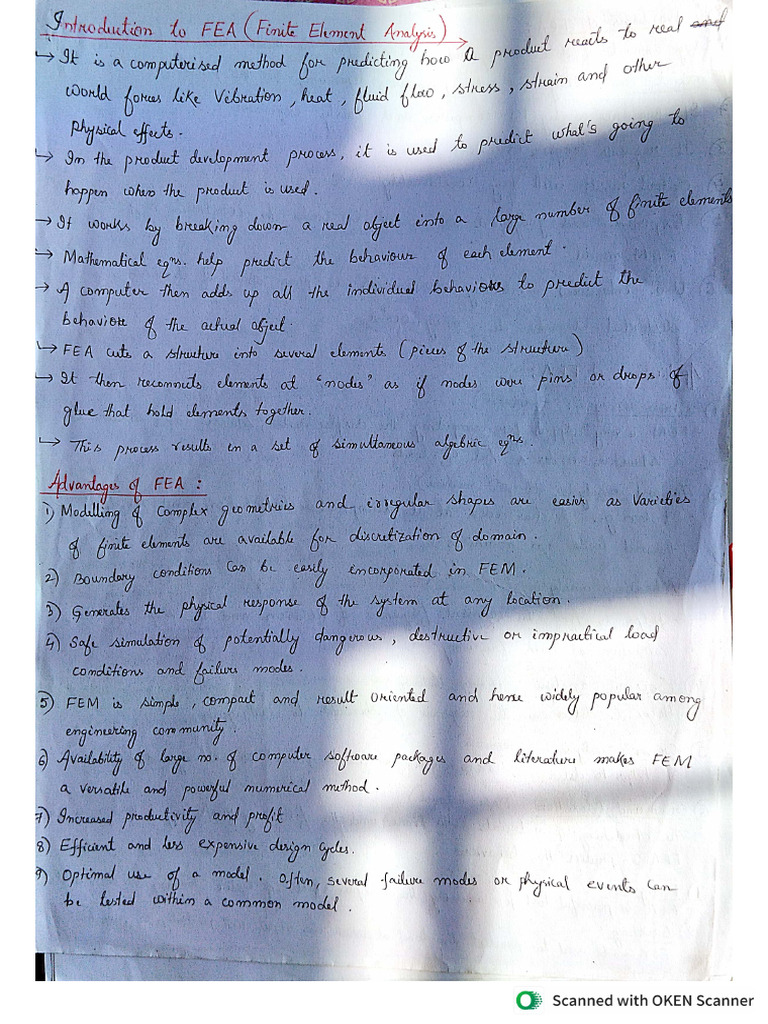 Introduction to FEA (Finite Element Analysis)
→ It is a computerised method for predicting how a product reacts to real and
world forces like vibration, heat, fluid flow, stress, strain and other
physical effects.
→ In the product development process, it is used to predict what's going to
happen when the product is used.
→ It works by breaking down a real object into a large number of finite elements
→ Mathematical eqns. help predict the behaviour of each element.
→ A computer then adds up all the individual behaviors to predict the
behaviour of the actual object.
→ FEA cuts a structure into several elements (pieces of the structure)
→ It then reconnects elements at "nodes" as if nodes were pins or drops of
glue that hold elements together.
→ This process results in a set of simultaneous algebric eqns.
Advantages of FEA :
1) Modelling of complex geometries and irregular shapes are easier as varieties
of finite elements are available for discretization of domain.
2) Boundary conditions can be easily incorporated in FEM.
3) Generates the physical response of the system at any location.
4) Safe simulation of potentially dangerous, destructive or impractical load
conditions and failure modes.
5) FEM is simple, compact and result oriented and hence widely popular among
engineering community.
6) Availability of large no. of computer software packages and literature makes FEM
a versatile and powerful numerical method.
7) Increased productivity and profit
8) Efficient and less expensive design cycles.
9) Optimal use of a model. Often, several failure modes or physical events can
be tested within a common model.
Scanned with OKEN Scanner